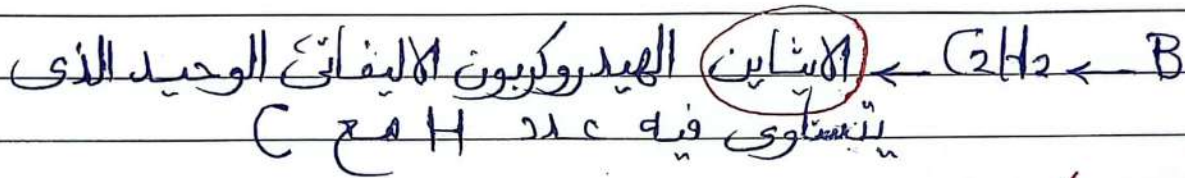 B ← C2H2 ← الايثاين الهيدروكربون الاليفاتى الوحيد الذى
يتساوى فيه عدد H مع C